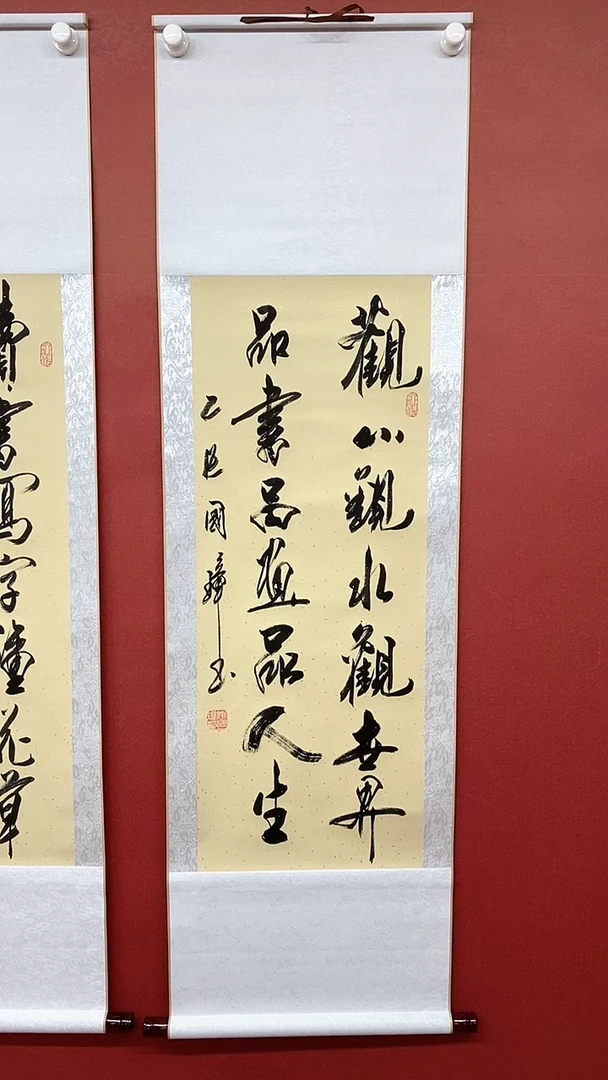 觀山觀水觀世界
品書品畫品人生
乙巳國璋书
書寫字塗花草